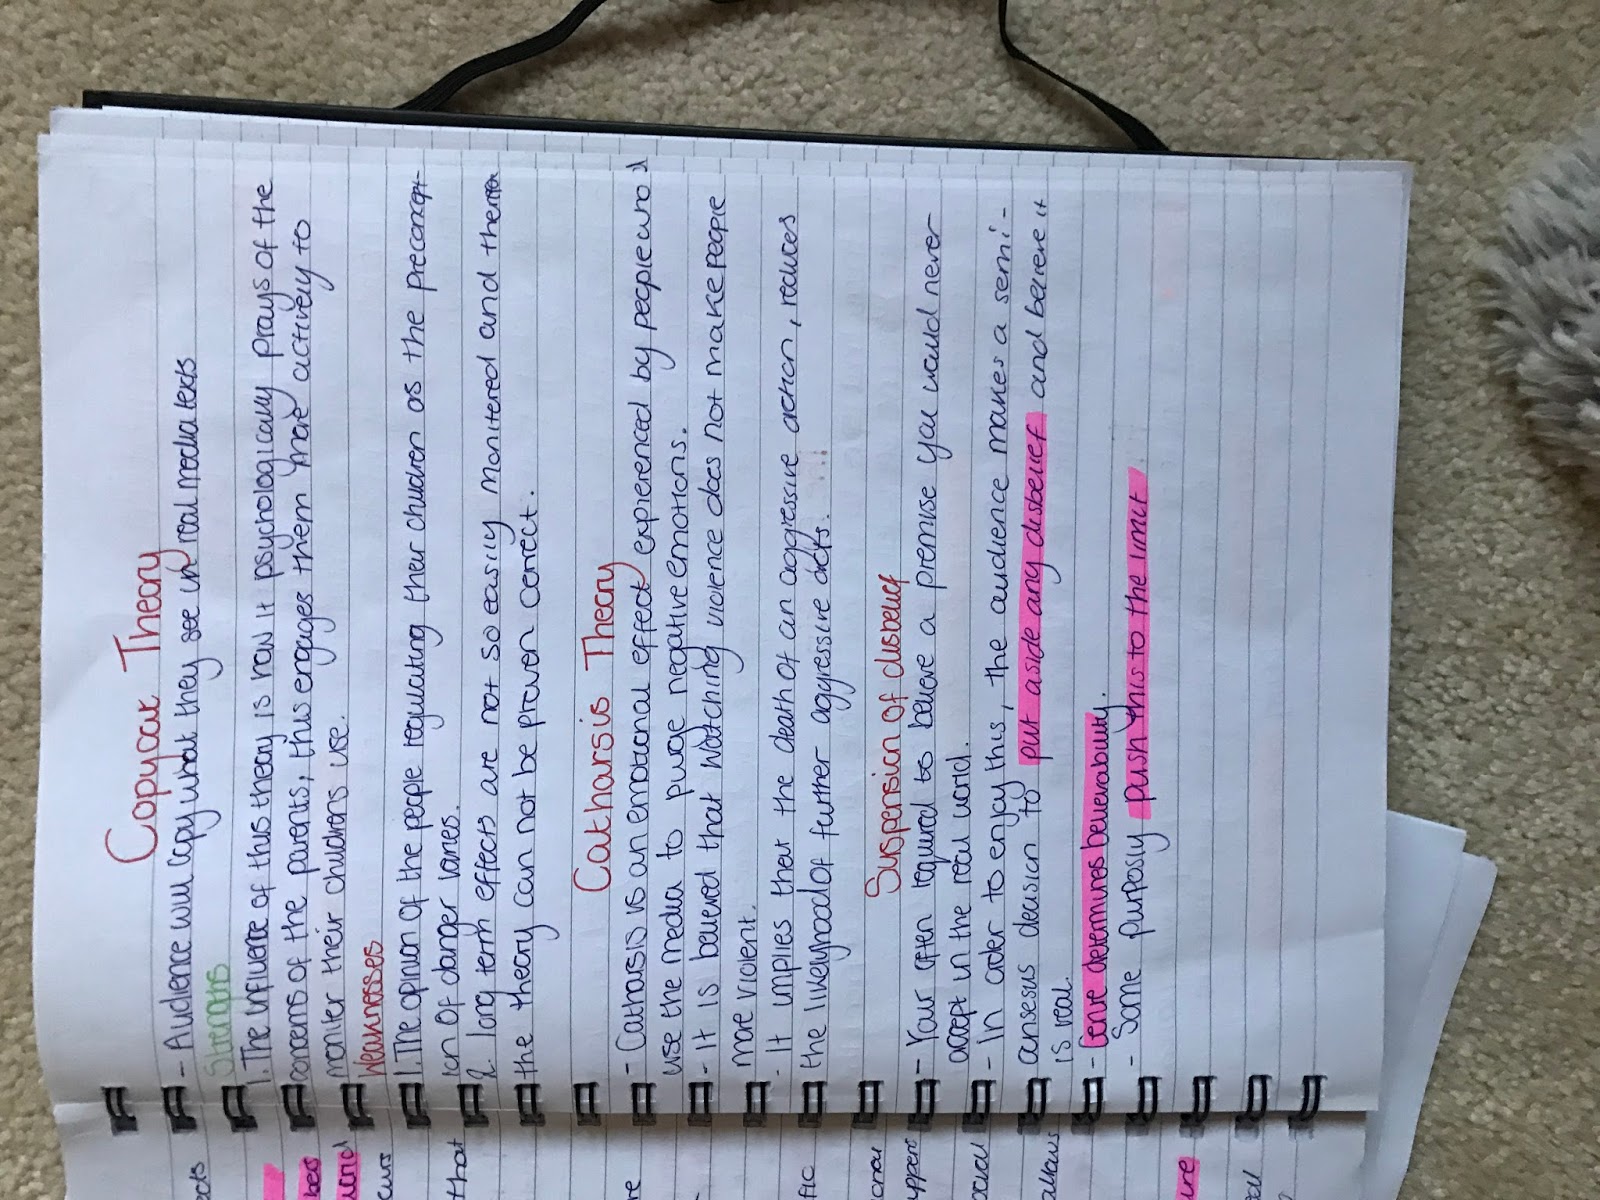 Copycat Theory
- Audience will copy what they see in real media texts
Strengths
1. The influence of this theory is how it psychologically prays of the
concerns of the parents, this engages them more actively to
moniter their childrens use.
Weaknesses
1. The opinion of the people regulating their children as the precorcept-
ion of danger varies.
2. long term effects are not so easily monitered and
the theory can not be proven correct.
Catharsis Theory
- Catharsis is an emotional effect experienced by people who
use the media to purge negative emotions.
- It is believed that watching violence does not make people
more violent.
- It implies that the death of an aggressive action, reduces
the likelyhood of further aggressive acts.
Suspension of disbelief
- Your often required to believe a premise you would never
accept in the real world.
- In order to enjoy this, the audience makes a semi-
consesus decision to put aside any disbelief and believe it
is real.
- Genre determines believability.
- Some purposly push this to the limit
curs
that
re
fic